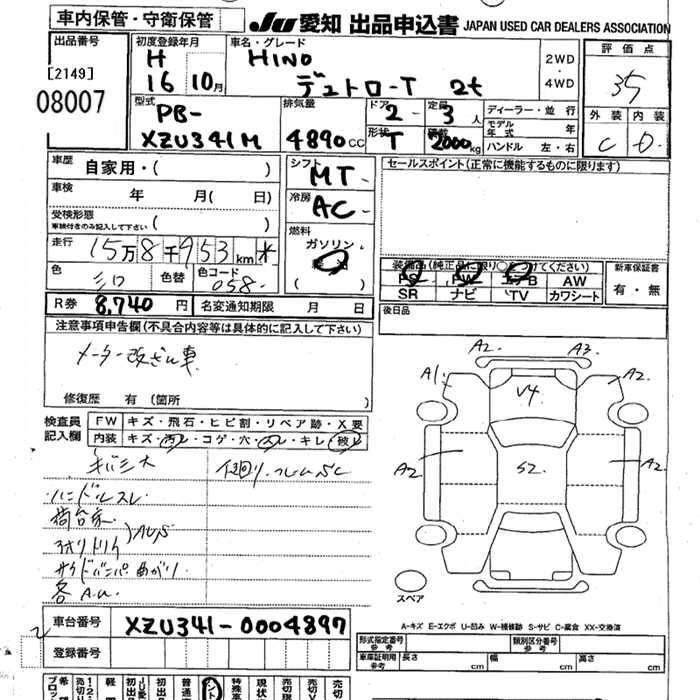 車内保管・守衛保管
JU 愛知 出品申込書 JAPAN USED CAR DEALERS ASSOCIATION
出品番号
[2149]
08007
初度登録年月
H
16 10月
車名・グレード
HINO
デュトロ-T 2t
2WD
・
4WD
評価点
35
型式
PB-
XZU341M
排気量
4890cc
ドア
2-
形状
T
定員
3人
2000kg
ディーラー・並行
モデル年式 年
ハンドル 左・右
外装 内装
C D
車歴
自家用・( )
車検
年 月( 日)
受検形態
車検付きのみ記入して下さい
( )
走行
15万8千953km *
色
色替
色コード
058-
R券 8,740円
名変通知期限 月 日
シフト
MT-
冷房
AC-
燃料
ガソリン
( )
セールスポイント(正常に機能するものに限ります)
装備品(純正品に限り○をつけてください)
PS PW エアB AW
SR ナビ TV カワシート
新車保証書
有・無
後日品
注意事項申告欄(不具合内容等は具体的に記入して下さい)
メーター改ざん車
修復歴 有 (箇所 )
検査員
記入欄
FW キズ・飛石・ヒビ割・リペア跡・X要
内装 キズ・汚れ・コゲ・穴・スレ・キレ・破レ
ハンドルスレ
A2 A3
A1 V4 A2
A2 S2 A2
スペア
A-キズ E-エクボ U-凹み W-補修跡 S-サビ C-腐食 XX-交換済
車台番号 XZU341-0004897
登録番号
形式指定番号
参考
類別区分番号
参考
車庫証明用
参考
長さ cm 幅 cm 高さ cm